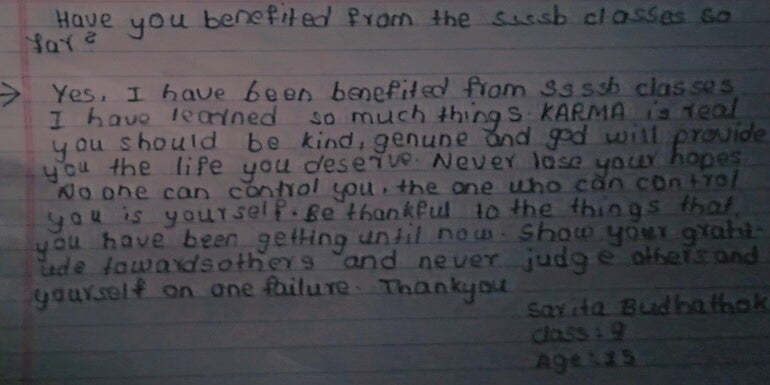 Have you benefited from the sssssb classes so
far?
→ Yes, I have been benefited from sssssb classes
I have learned so much things. KARMA is real
you should be kind, genune and god will provide
you the life you deserve. Never lose your hopes
No one can control you, the one who can control
you is yourself. Be thankful to the things that
you have been getting until now. Show your gratit-
ude towards others and never judge others and
yourself on one failure. Thankyou
Sarita Budhathok
class: 9
Age: 15